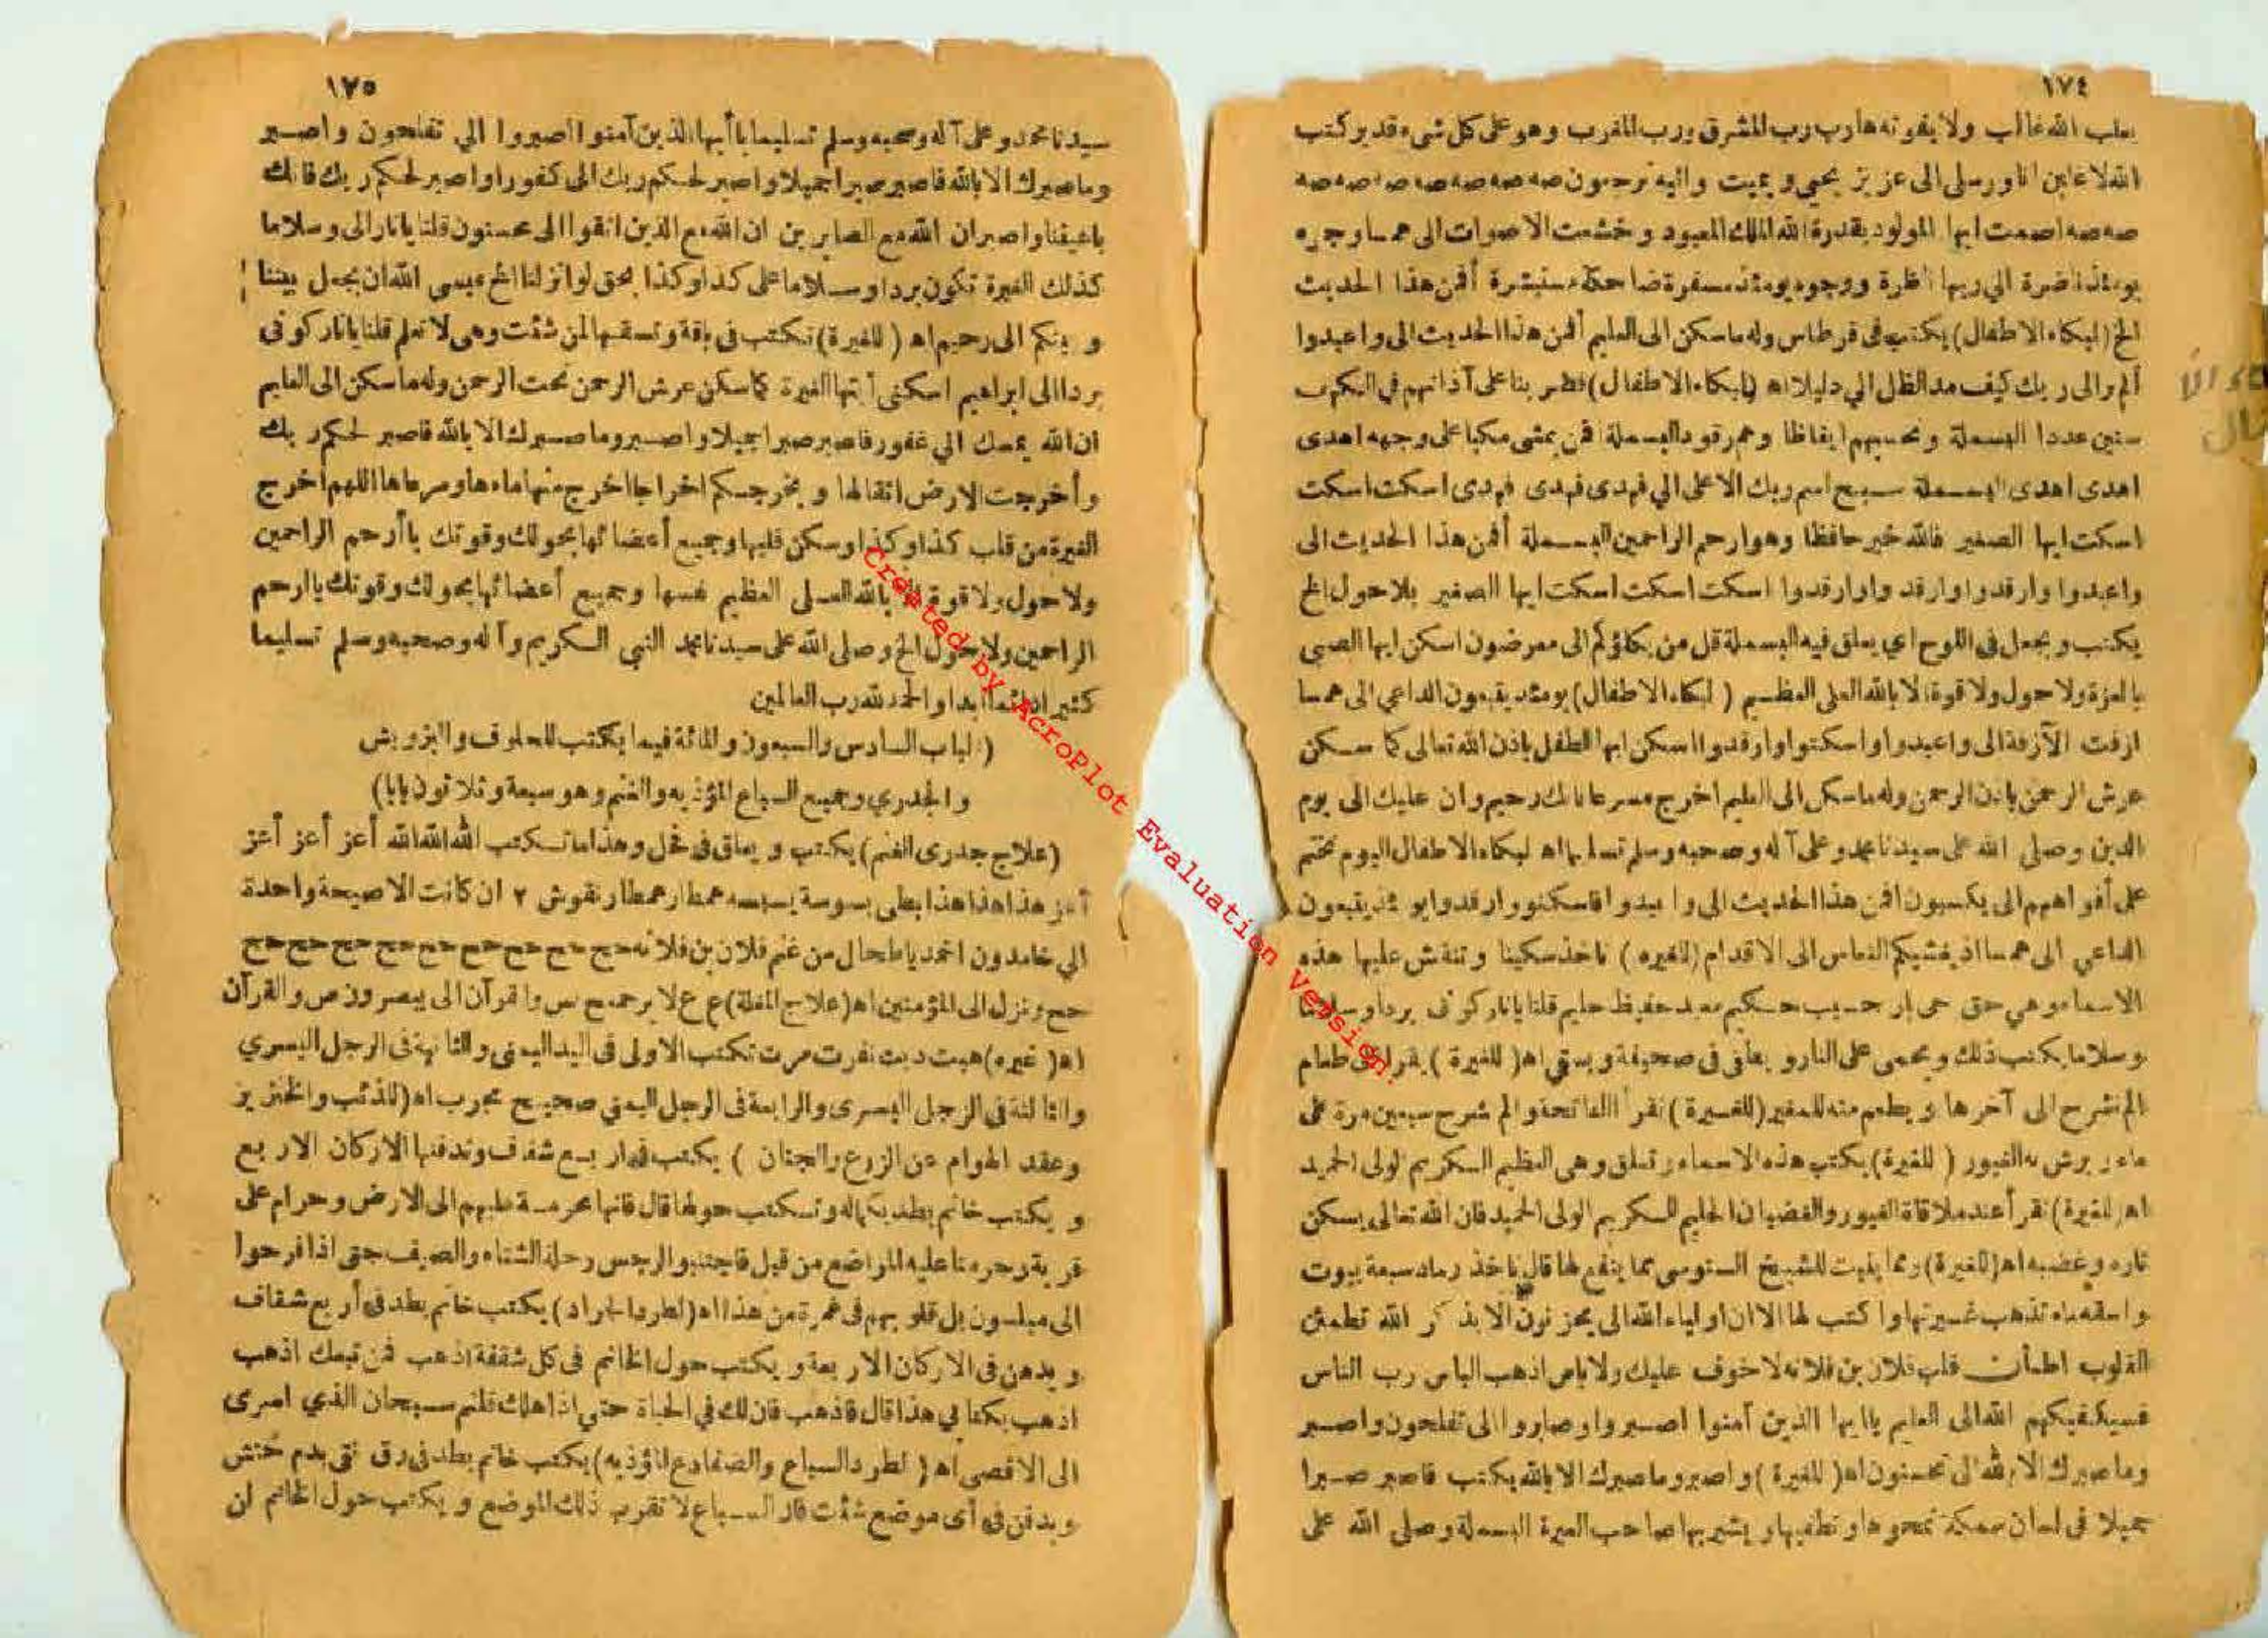 ١٧٤
الله غالب ولا يفوته هارب رب المشرق ورب المغرب وهو على كل شيء قدير كتب
الله لاغلبن انا ورسلي الى عزيز يحيي ويميت واليه ترجعون صه صه صه صه صه صه صه
صه صه اصمت ايها المولود بقدرة الله الملك المعبود وخشعت الاصوات الى همسا وجوه
يومئذ ناضرة الي ربها ناظرة ووجوه يومئذ مسفرة ضاحكة مستبشرة أفمن هذا الحديث
الخ (لبكاء الاطفال) يكتب فى قرطاس وله ما سكن الى العليم أفمن هذا الحديث الى واعبدوا
ألم تر الى ربك كيف مد الظل الي دليلا اه (لبكاء الاطفال) فضربنا على آذانهم في الكهف
سنين عددا البسملة وتحسبهم ايقاظا وهم رقود البسملة افمن يمشى مكبا على وجهه اهدى
اهدى اهدى البسملة سبح اسم ربك الاعلى الي فهدى فهدى فهدى اسكت اسكت
اسكت ايها الصغير فالله خير حافظا وهو ارحم الراحمين البسملة أفمن هذا الحديث الى
واعبدوا وارقدوا وارقد وارقدوا اسكت اسكت اسكت ايها الصغير بلا حول الخ
يكتب ويجعل فى اللوح اي يعلق فيه البسملة قل من يكلؤكم الى معرضون اسكن ايها الصبى
بالعزة ولا حول ولا قوة الا بالله العلى العظيم (لبكاء الاطفال) يومئذ يتبعون الداعي الى همسا
ازفت الآزفة الى واعبدوا واسكتوا وارقدوا اسكن ايها الطفل باذن الله تعالى كما سكن
عرش الرحمن باذن الرحمن وله ما سكن الى العليم اخرج مسرعا فانك رجيم وان عليك الى يوم
الدين وصلى الله على سيدنا محمد وعلى آله وصحبه وسلم تسليما اه لبكاء الاطفال اليوم نختم
على أفواههم الى يكسبون افمن هذا الحديث الى واعبدوا فاسكنوا وارقدوا يومئذ يتبعون
الداعي الى همسا اذ يغشيكم النعاس الى الاقدام (للغيره) تاخذ سكينا وتنقش عليها هذه
الاسماء وهي حق حى حسيب حكيم حفيظ حليم قلنا يا نار كونى بردا وسلاما
وسلاما يكتب ذلك ويحمى على النار فى صحيفة ويسقي اه (للغيرة) يقرا على طعام
الم نشرح الى آخرها ويطعم منه للصغير (للغيرة) تقرأ الفاتحة والم نشرح سبعين مرة على
ماء يرش به الغيور (للغيرة) يكتب هذه الاسماء وتعلق وهى العظيم الكريم الولى الحميد
اه (للغيرة) تقرأ عند ملاقاة الغيور والغضبان الحليم الكريم الولى الحميد فان الله تعالى يسكن
ناره وغضبه اه (للغيرة) للشيخ السنوسى مما ينفع لها قال تاخذ رماد سبعة بيوت
واسقه تذهب غيرتها واكتب لها الا ان اولياء الله الى يحزنون الا بذكر الله تطمئن
القلوب اطمأن قلب فلان بن فلانه لا خوف عليك ولا باس اذهب الباس رب الناس
فسيكفيكهم الله الى العليم يا ايها الذين آمنوا اصبروا وصابروا الى تفلحون واصبر
وما صبرك الا بالله الى محسنون اه (للغيرة) واصبر وما صبرك الا بالله يكتب فاصبر صبرا
جميلا فى لسان سمكة تمحوها ويشربها صاحب الغيرة البسملة وصلى الله على
١٧٥
سيدنا محمد وعلى آله وصحبه وسلم تسليما يا أيها الذين آمنوا اصبروا الي تفلحون واصبر
وما صبرك الا بالله فاصبر صبرا جميلا واصبر لحكم ربك الى كفورا واصبر لحكم ربك فانك
باعيننا واصبر ان الله مع الصابرين ان الله مع الذين اتقوا الى محسنون قلنا يا نار الى وسلاما
كذلك الغيرة تكون بردا وسلاما على كذا وكذا بحق لو انزلنا الخ عيسى الله ان يجعل بيننا
وبينكم الى رحيم اه (للغيرة) تكتب فى باقة وتسقيها لمن شئت وهى لا تعلم قلنا يا نار كونى
بردا الى ابراهيم اسكنى أيتها الغيرة كما سكن عرش الرحمن تحت الرحمن وله ما سكن الى العليم
ان الله يمسك الي غفور فاصبر صبرا جميلا واصبر وما صبرك الا بالله فاصبر لحكم ربك
وأخرجت الارض اثقالها ويخرجكم اخراجا اخرج منها ماءها ومرعاها اللهم اخرج
الغيرة من قلب كذا وكذا وسكن قلبها وجميع أعضائها بحولك وقوتك يا أرحم الراحمين
ولا حول ولا قوة الا بالله العلى العظيم نفسها وجميع أعضائها بحولك وقوتك يا ارحم
الراحمين ولا حول الخ وصلى الله على سيدنا محمد النبي الكريم وآله وصحبه وسلم تسليما
كثيرا دائما ابدا والحمد لله رب العالمين
(الباب السادس والسبعون والمائة فيما يكتب للحلوف والبزويش
والجدري وجميع السباع المؤذيه والغنم وهو سبعة وثلاثون بابا)
(علاج جدرى الغنم) يكتب ويعلق فى فحل وهذا ما تكتب الله الله الله أعز أعز أعز
أعز هذا هذا هذا بطى بسوسة همطار همطار نقوش ٢ ان كانت الا صيحة واحدة
الي خامدون اخمد يا طحال من غنم فلان بن فلانه حج حج حج حج حج حج حج حج حج
حج وننزل الى المؤمنين اه (علاج الغلة) ع ع لا يرحمهم ح س والقرآن الى يبصرون ص والقرآن
اه (غيره) هبت دبت نفرت مرت تكتب الاولى فى اليد اليمنى والثانية فى الرجل اليسري
والثالثة فى الرجل اليسرى والرابعة فى الرجل اليمني صحيح مجرب اه (للذئب والخنزير
وعقد الهوام عن الزرع والجنان) يكتب فى اربع شقف وتدفنها الاركان الاربع
ويكتب خاتم بطد بكماله وتكتب حولها قال فانها محرمة عليهم الى الارض وحرام على
قرية وحرمنا عليه المراضع من قبل فاجتنبوا الرجس رحلة الشتاء والصيف حتى اذا فرحوا
الى مبلسون بل قلوبهم فى غمرة من هذا اه (لطرد الجراد) يكتب خاتم بطد فى أربع شقاف
ويدهن فى الاركان الاربعة ويكتب حول الخاتم فى كل شقفة اذهب فمن تبعك اذهب
اذهب بكتابي هذا قال فاذهب فان لك في الحياة حتي اذا هلك قلتم سبحان الذي اسرى
الى الاقصى اه (لطرد السباع والضفادع المؤذيه) يكتب خاتم بطد فى رق نقى بدم حنش
ويدفن في أى موضع شئت فان السباع لا تقرب ذلك الموضع ويكتب حول الخاتم لن
Created by AcroPlot Evaluation Version.